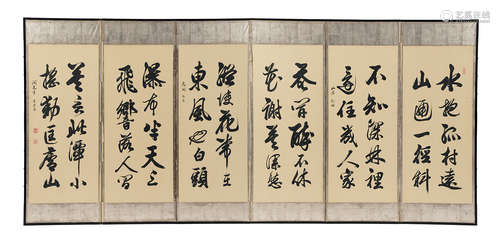 水抱孤村遠
山通一徑斜
不知深林裡
還住幾人家
醉不休
花謝莫深愁
縱使花常在
東風也白頭
瀑布半天上
飛響落人間
莫言此潭小
搖動匡廬山